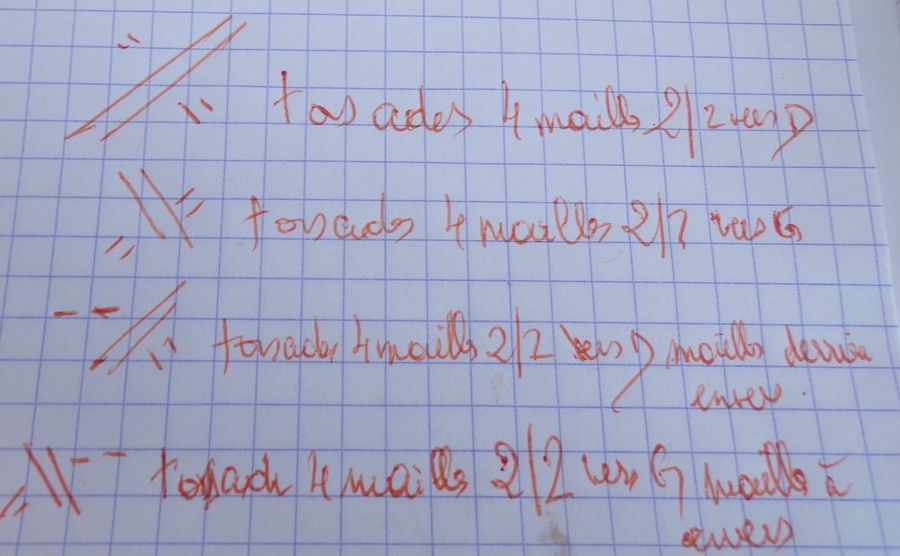 torsades 4 mailles 2/2 vers D
torsades 4 mailles 2/2 vers G
torsades 4 mailles 2/2 vers D mailles derrière
envers
torsade 4 mailles 2/2 vers G mailles à
envers